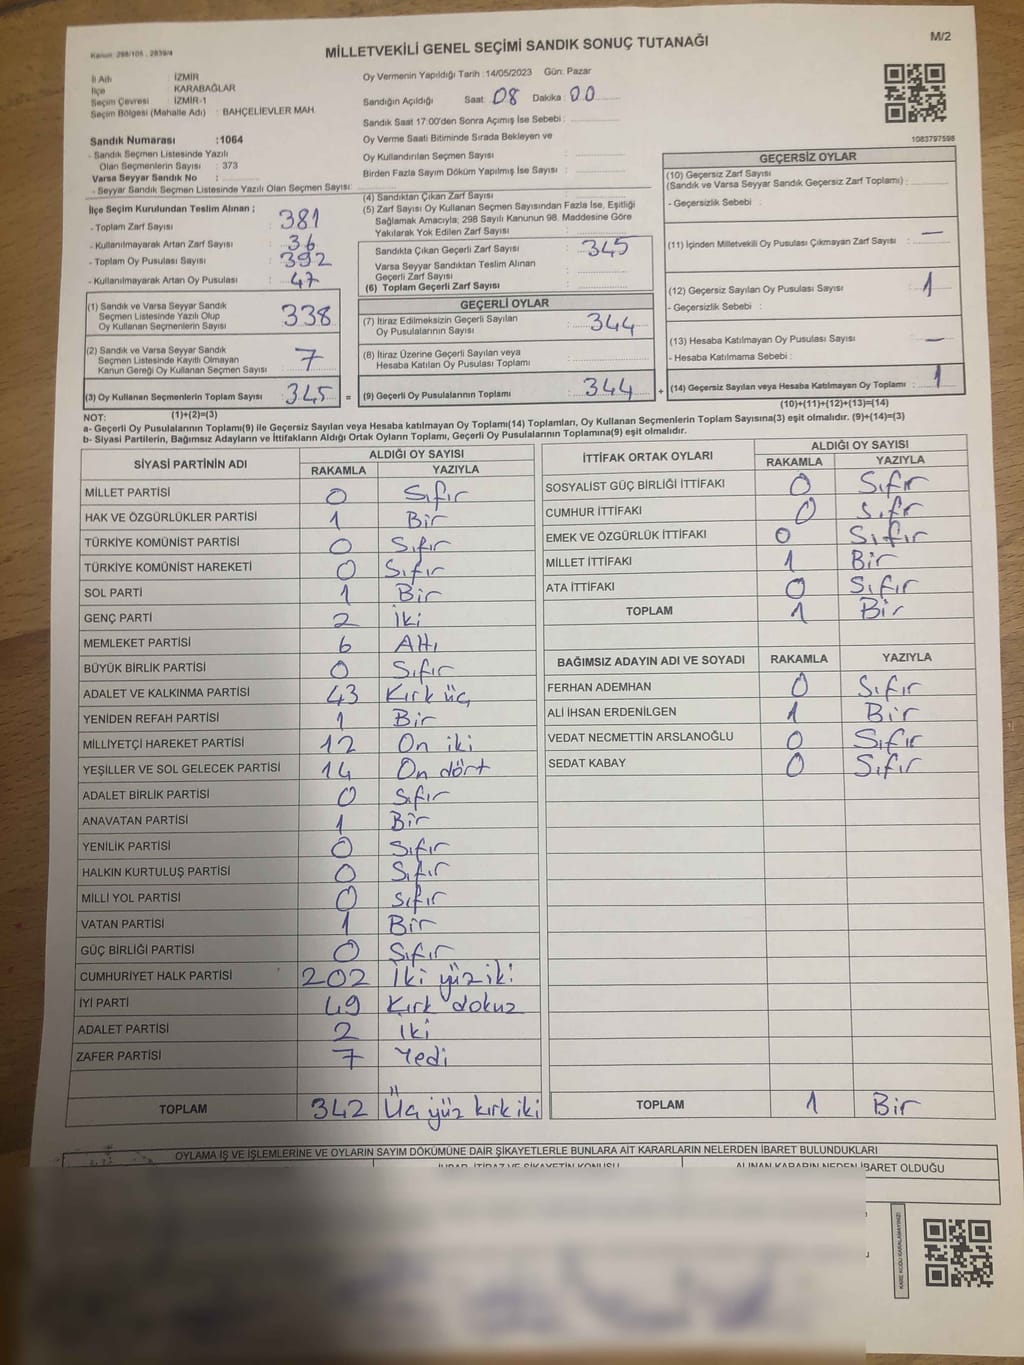 Kanun: 298/105 , 2839/4
MİLLETVEKİLİ GENEL SEÇİMİ SANDIK SONUÇ TUTANAĞI
M/2
İl Adı : İZMİR
İlçe : KARABAĞLAR
Seçim Çevresi : İZMİR-1
Seçim Bölgesi (Mahalle Adı) : BAHÇELİEVLER MAH.
Sandık Numarası :1064
- Sandık Seçmen Listesinde Yazılı
Olan Seçmenlerin Sayısı : 373
Varsa Seyyar Sandık No :
- Seyyar Sandık Seçmen Listesinde Yazılı Olan Seçmen Sayısı:
Oy Vermenin Yapıldığı Tarih : 14/05/2023 Gün: Pazar
Sandığın Açıldığı Saat: 08 Dakika : 00
Sandık Saat 17:00'den Sonra Açımış İse Sebebi :
Oy Verme Saati Bitiminde Sırada Bekleyen ve
Oy Kullandırılan Seçmen Sayısı :
Birden Fazla Sayım Döküm Yapılmış İse Sayısı :
1083797598
İlçe Seçim Kurulundan Teslim Alınan ;
- Toplam Zarf Sayısı : 381
- Kullanılmayarak Artan Zarf Sayısı : 36
- Toplam Oy Pusulası Sayısı : 392
- Kullanılmayarak Artan Oy Pusulası : 47
(1) Sandık ve Varsa Seyyar Sandık
Seçmen Listesinde Yazılı Olup
Oy Kullanan Seçmenlerin Sayısı : 338
(2) Sandık ve Varsa Seyyar Sandık
Seçmen Listesinde Kayıtlı Olmayan
Kanun Gereği Oy Kullanan Seçmen Sayısı : 7
(3) Oy Kullanan Seçmenlerin Toplam Sayısı : 345 =
(1)+(2)=(3)
(4) Sandıktan Çıkan Zarf Sayısı :
(5) Zarf Sayısı Oy Kullanan Seçmen Sayısından Fazla İse, Eşitliği
Sağlamak Amacıyla; 298 Sayılı Kanunun 98. Maddesine Göre
Yakılarak Yok Edilen Zarf Sayısı :
Sandıkta Çıkan Geçerli Zarf Sayısı : 345
Varsa Seyyar Sandıktan Teslim Alınan
Geçerli Zarf Sayısı :
(6) Toplam Geçerli Zarf Sayısı :
GEÇERLİ OYLAR
(7) İtiraz Edilmeksizin Geçerli Sayılan
Oy Pusulalarının Sayısı : 344
(8) İtiraz Üzerine Geçerli Sayılan veya
Hesaba Katılan Oy Pusulası Toplamı :
(9) Geçerli Oy Pusulalarının Toplamı : 344 +
GEÇERSİZ OYLAR
(10) Geçersiz Zarf Sayısı
(Sandık ve Varsa Seyyar Sandık Geçersiz Zarf Toplamı) :
- Geçersizlik Sebebi :
(11) İçinden Milletvekili Oy Pusulası Çıkmayan Zarf Sayısı : —
(12) Geçersiz Sayılan Oy Pusulası Sayısı : 1
- Geçersizlik Sebebi :
(13) Hesaba Katılmayan Oy Pusulası Sayısı : —
- Hesaba Katılmama Sebebi :
(14) Geçersiz Sayılan veya Hesaba Katılmayan Oy Toplamı : 1
(10)+(11)+(12)+(13)=(14)
NOT:
a- Geçerli Oy Pusulalarının Toplamı(9) ile Geçersiz Sayılan veya Hesaba katılmayan Oy Toplamı(14) Toplamları, Oy Kullanan Seçmenlerin Toplam Sayısına(3) eşit olmalıdır. (9)+(14)=(3)
b- Siyasi Partilerin, Bağımsız Adayların ve İttifakların Aldığı Ortak Oyların Toplamı, Geçerli Oy Pusulalarının Toplamına(9) eşit olmalıdır.
SİYASİ PARTİNİN ADI ALDIĞI OY SAYISI
RAKAMLA YAZIYLA
MİLLET PARTİSİ 0 Sıfır
HAK VE ÖZGÜRLÜKLER PARTİSİ 1 Bir
TÜRKİYE KOMÜNİST PARTİSİ 0 Sıfır
TÜRKİYE KOMÜNİST HAREKETİ 0 Sıfır
SOL PARTİ 1 Bir
GENÇ PARTİ 2 İki
MEMLEKET PARTİSİ 6 Altı
BÜYÜK BİRLİK PARTİSİ 0 Sıfır
ADALET VE KALKINMA PARTİSİ 43 Kırk üç
YENİDEN REFAH PARTİSİ 1 Bir
MİLLİYETÇİ HAREKET PARTİSİ 12 On iki
YEŞİLLER VE SOL GELECEK PARTİSİ 14 On dört
ADALET BİRLİK PARTİSİ 0 Sıfır
ANAVATAN PARTİSİ 1 Bir
YENİLİK PARTİSİ 0 Sıfır
HALKIN KURTULUŞ PARTİSİ 0 Sıfır
MİLLİ YOL PARTİSİ 0 Sıfır
VATAN PARTİSİ 1 Bir
GÜÇ BİRLİĞİ PARTİSİ 0 Sıfır
CUMHURİYET HALK PARTİSİ 202 İki yüz iki
İYİ PARTİ 49 Kırk dokuz
ADALET PARTİSİ 2 İki
ZAFER PARTİSİ 7 Yedi
TOPLAM 342 Üç yüz kırk iki
İTTİFAK ORTAK OYLARI ALDIĞI OY SAYISI
RAKAMLA YAZIYLA
SOSYALİST GÜÇ BİRLİĞİ İTTİFAKI 0 Sıfır
CUMHUR İTTİFAKI 0 Sıfr
EMEK VE ÖZGÜRLÜK İTTİFAKI 0 Sıfır
MİLLET İTTİFAKI 1 Bir
ATA İTTİFAKI 0 Sıfır
TOPLAM 1 Bir
BAĞIMSIZ ADAYIN ADI VE SOYADI RAKAMLA YAZIYLA
FERHAN ADEMHAN 0 Sıfır
ALİ İHSAN ERDENİLGEN 1 Bir
VEDAT NECMETTİN ARSLANOĞLU 0 Sıfır
SEDAT KABAY 0 Sıfır
TOPLAM 1 Bir
OYLAMA İŞ VE İŞLEMLERİNE VE OYLARIN SAYIM DÖKÜMÜNE DAİR ŞİKAYETLERLE BUNLARA AİT KARARLARIN NELERDEN İBARET BULUNDUKLARI
ALINAN KARARIN NEDEN İBARET OLDUĞU
KARE KODU KARALAMAYINIZ!